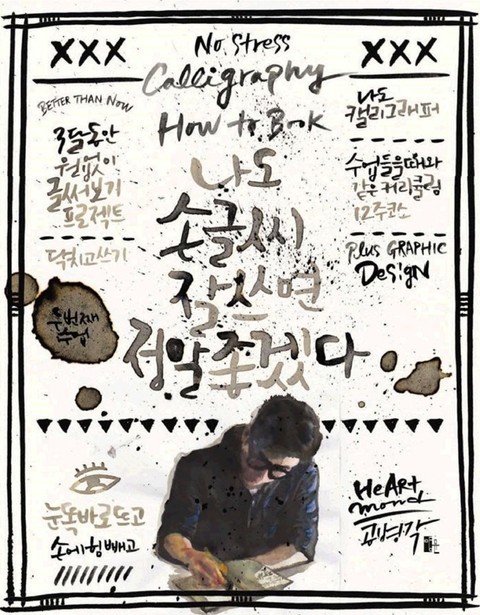 XXX
No. Stress
XXX
Calligraphy
How to Book
BETTER THAN NOW
3달동안
원없이
글써보기
프로젝트
닥치고쓰기
두번째
나도
손글씨
잘쓰면
정말좋겠다
나도
캘리그래퍼
수업들을때와
같은커리큘럼
12주코스
Plus GRAPHIC
DeSigN
눈똑바로뜨고
손에힘빼고
HeARt
mond
공병각